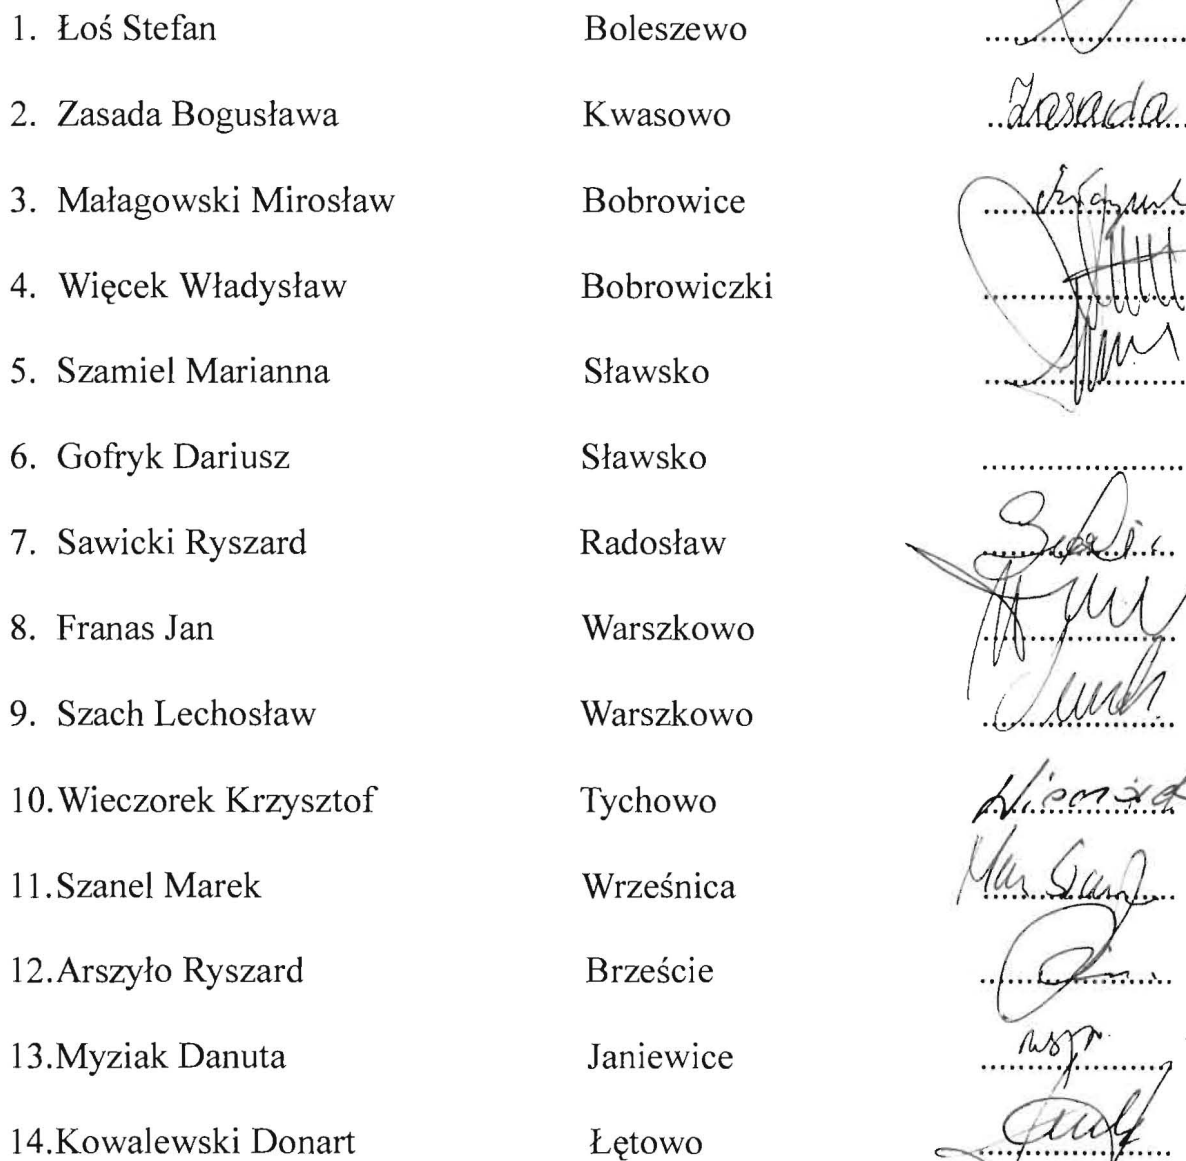 1. Łoś Stefan Boleszewo
2. Zasada Bogusława Kwasowo Zasada
3. Małagowski Mirosław Bobrowice
4. Więcek Władysław Bobrowiczki
5. Szamiel Marianna Sławsko
6. Gofryk Dariusz Sławsko
7. Sawicki Ryszard Radosław
8. Franas Jan Warszkowo
9. Szach Lechosław Warszkowo
10. Wieczorek Krzysztof Tychowo
11. Szanel Marek Wrześnica
12. Arszyło Ryszard Brzeście
13. Myziak Danuta Janiewice
14. Kowalewski Donart Łętowo